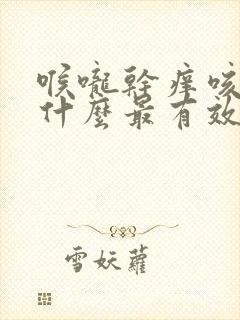 喉嚨乾癢咳
什麼最有效
雪妖蘿